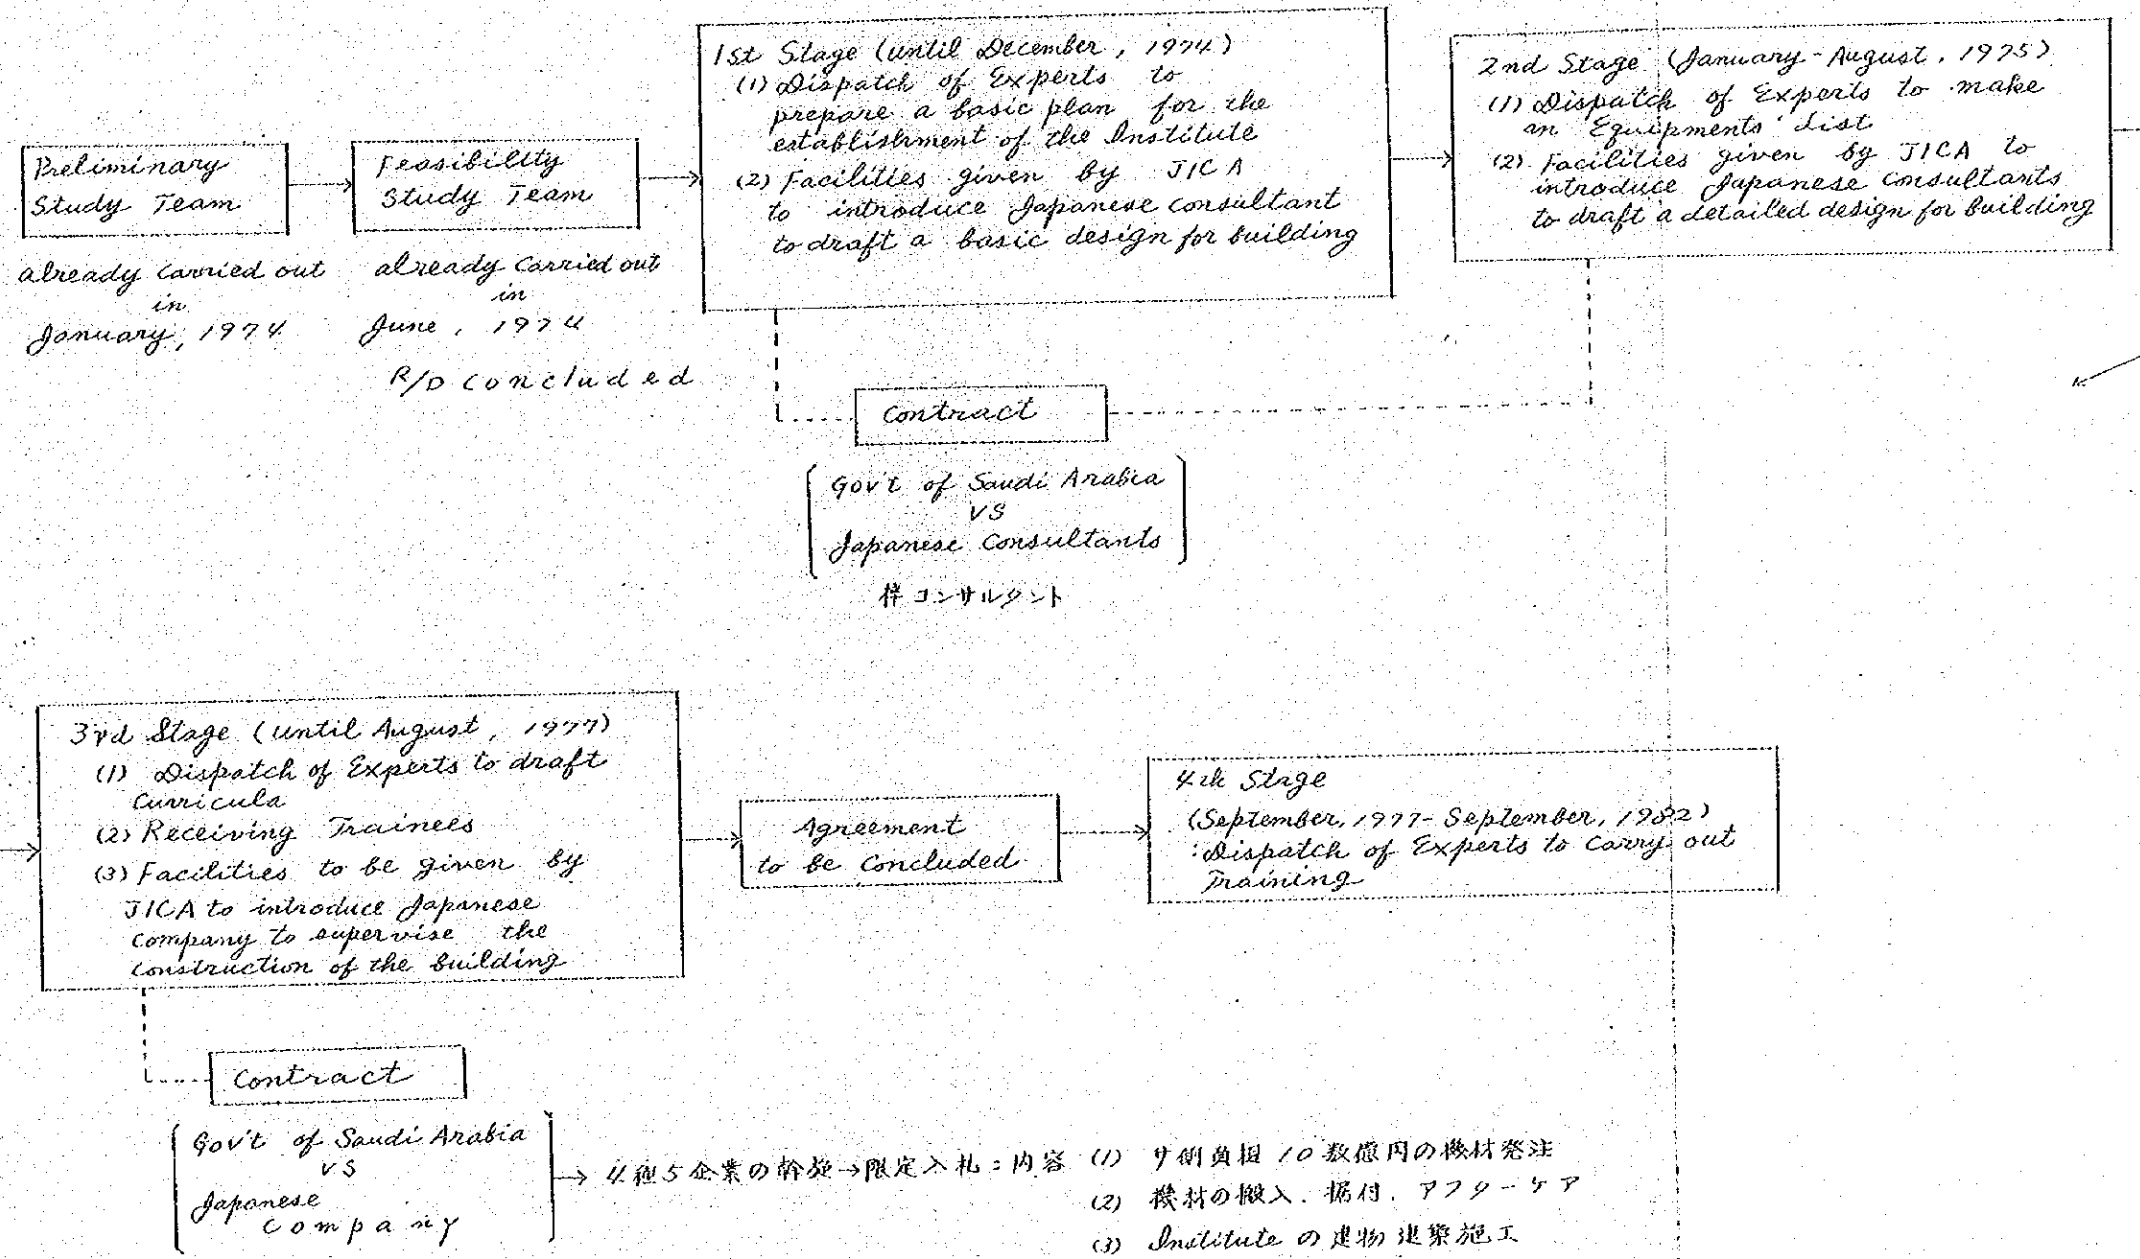 Preliminary
Study Team
already carried out
in
January, 1974
Feasibility
Study Team
already carried out
in
June, 1974
R/D concluded
1st Stage (until December, 1974)
(1) Dispatch of Experts to
prepare a basic plan for the
establishment of the Institute
(2) Facilities given by JICA
to introduce Japanese consultant
to draft a basic design for building
2nd Stage (January-August, 1975)
(1) Dispatch of Experts to make
an Equipments' List
(2) Facilities given by JICA to
introduce Japanese consultants
to draft a detailed design for building
Contract
Gov't of Saudi Arabia
VS
Japanese Consultants
コンサルタント
3rd Stage (until August, 1977)
(1) Dispatch of Experts to draft
Curricula
(2) Receiving Trainees
(3) Facilities to be given by
JICA to introduce Japanese
company to supervise the
construction of the building
Agreement
to be concluded
4th Stage
(September, 1977-September, 1982)
: Dispatch of Experts to carry out
Training
Contract
Gov't of Saudi Arabia
VS
Japanese
Company
→ 5企業の幹旋→限定入札：内容
(1) サ側負担10数億円の機材発注
(2) 機材の搬入．据付．アフターケア
(3) Instituteの建物建築施工